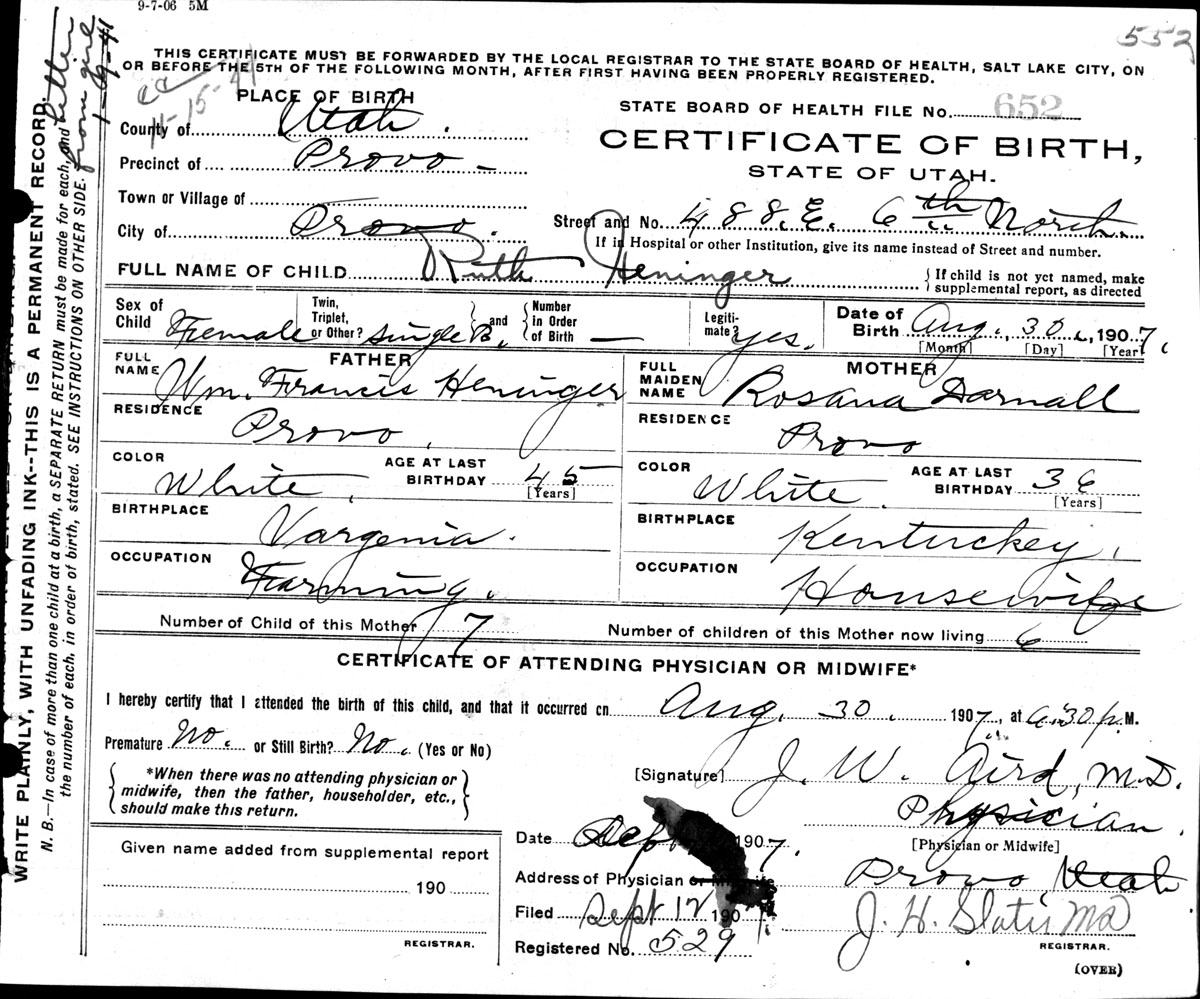 9-7-06 5M
552
THIS CERTIFICATE MUST BE FORWARDED BY THE LOCAL REGISTRAR TO THE STATE BOARD OF HEALTH, SALT LAKE CITY, ON
OR BEFORE THE 5TH OF THE FOLLOWING MONTH, AFTER FIRST HAVING BEEN PROPERLY REGISTERED.
11-15-41
PLACE OF BIRTH
County of Utah.
Precinct of Provo
Town or Village of
City of Provo.
STATE BOARD OF HEALTH FILE No. 652
CERTIFICATE OF BIRTH,
STATE OF UTAH.
Street and No. 488. E. 6th North.
If in Hospital or other Institution, give its name instead of Street and number.
FULL NAME OF CHILD Ruth Heninger
{ If child is not yet named, make
supplemental report, as directed
Sex of Child Female
Twin, Triplet, or Other? single B. and Number in Order of Birth —
Legitimate? yes.
Date of Birth Aug. 30, 1907,
[Month] [Day] [Year]
FATHER
FULL NAME Wm. Francis Heninger
RESIDENCE Provo.
COLOR White, AGE AT LAST BIRTHDAY 45 [Years]
BIRTHPLACE Vargenia.
OCCUPATION Farming.
MOTHER
FULL MAIDEN NAME Rosana Darnall
RESIDENCE Provo
COLOR White. AGE AT LAST BIRTHDAY 36 [Years]
BIRTHPLACE Kentuckey,
OCCUPATION Housewife
Number of Child of this Mother 7 Number of children of this Mother now living 6
CERTIFICATE OF ATTENDING PHYSICIAN OR MIDWIFE*
I hereby certify that I attended the birth of this child, and that it occurred on Aug. 30. 1907, at 6.30 p. M.
Premature No. or Still Birth? No. (Yes or No)
{ *When there was no attending physician or
midwife, then the father, householder, etc.,
should make this return. }
[Signature] J. W. Aird, M.D.
Physician.
[Physician or Midwife]
Given name added from supplemental report
190
REGISTRAR.
Date Sep 1907.
Address of Physician or Midwife Provo, Utah
Filed Sept 12 190
J. H. Slatis MD
REGISTRAR.
Registered No. 529
(OVER)
WRITE PLAINLY, WITH UNFADING INK--THIS IS A PERMANENT RECORD.
N. B.—In case of more than one child at a birth, a SEPARATE RETURN must be made for each, and
the number of each, in order of birth, stated. SEE INSTRUCTIONS ON OTHER SIDE.
letter
from girl
1-29-41